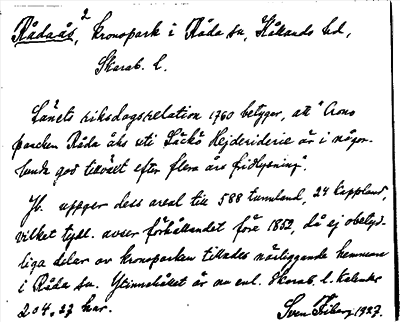 Rådaås 2, kronopark i Råda sn, Kållands hd,
Skarab. l.
Länets riksdagsrelation 1760 betyger, att "Crono
parcken Råda åhs uti Läckö Hejderiderie är i någor-
lunda god tillväxt efter flera års fridlysning".
Yb. uppger dess areal till 588 tunnland, 24 kappland,
vilket tydl. avser förhållandet före 1852, då ej obetyd-
liga delar av kronoparken tillades närliggande hemman
i Råda sn. Ytinnehållet är nu enl. Skarab. l. Kalender
204.23 har. Sven Fiberg 1927.